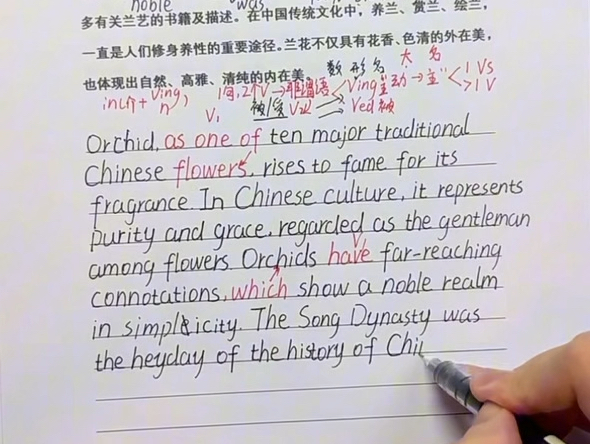 noble was
多有关兰艺的书籍及描述。在中国传统文化中，养兰、赏兰、绘兰，
一直是人们修身养性的重要途径。兰花不仅具有花香、色清的外在美，
也体现出自然、高雅、清纯的内在美。
数 形 名 大 名
in(介+ Ving, n) 1句,2个V→非谓语 < Ving主动 → 主 < 1 Vs >1 V
V, 被 Ved 被
Orchid, as one of ten major traditional
Chinese flowers, rises to fame for its
fragrance. In Chinese culture, it represents
purity and grace, regarded as the gentleman
among flowers. Orchids have far-reaching
connotations, which show a noble realm
in simplicity. The Song Dynasty was
the heyday of the history of Chi